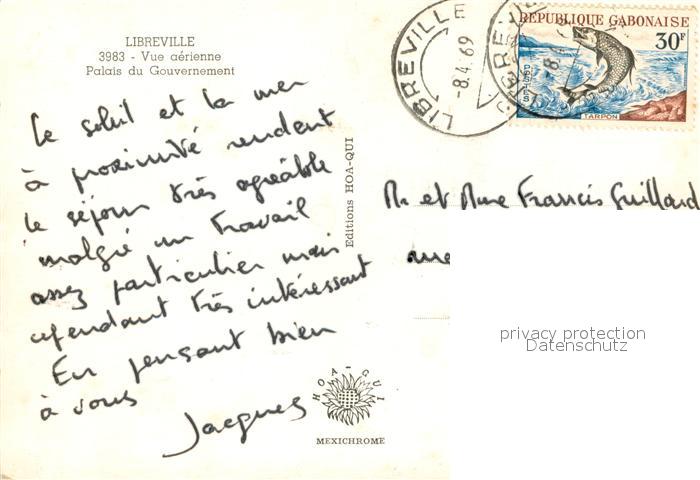 LIBREVILLE
3983 - Vue aérienne
Palais du Gouvernement
Le soleil et la mer
à proximité rendent
le séjour très agréable
malgré un travail
assez particulier mais
cependant très intéressant
En pensant bien
à vous
Jacques
Editions HOA-QUI
HOA-QUI
MEXICHROME
LIBREVILLE
-8.4.69
LIBREVILLE
-8.
REPUBLIQUE GABONAISE
30F
POSTES
TARPON
Mr et Mme Francis Guillard
privacy protection
Datenschutz